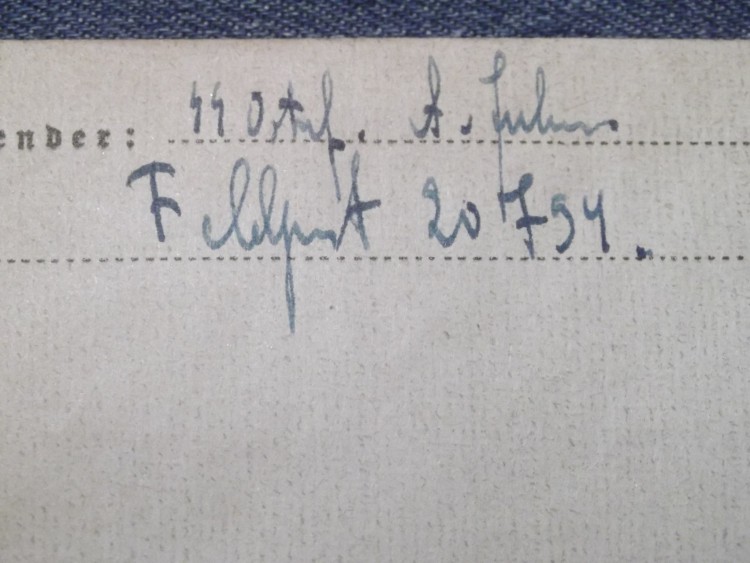 ender: SS Ostuf. A.
Feldpost 20 794.